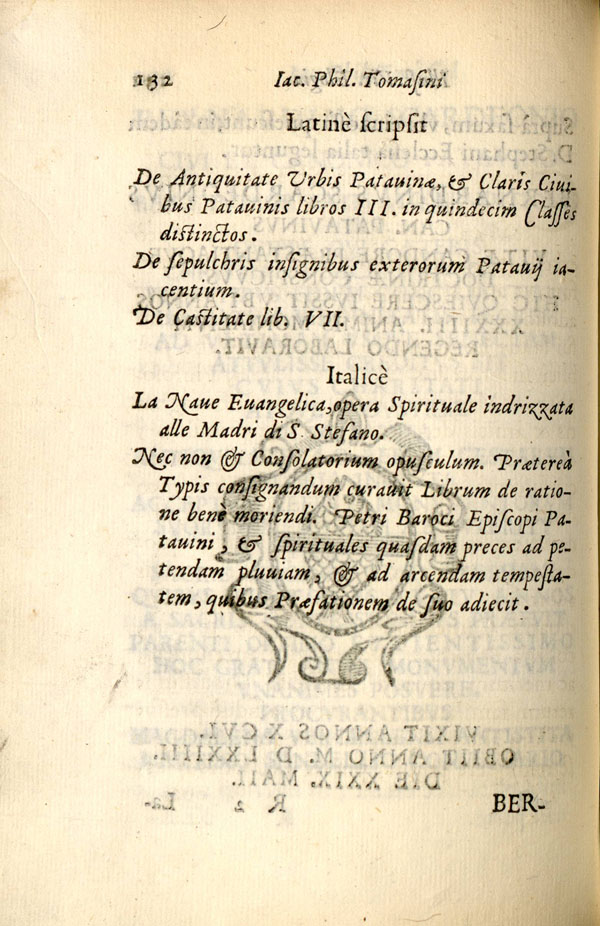 132 Iac. Phil. Tomasini
Latinè scripsit
De Antiquitate Urbis Patauinæ, & Claris Ciui-
bus Patauinis libros III. in quindecim Classes
distinctos.
De sepulchris insignibus exterorum Patauij ia-
centium.
De Castitate lib. VII.
Italicè
La Naue Euangelica, opera Spirituale indrizzata
alle Madri di S. Stefano.
Nec non & Consolatorium opusculum. Prætereà
Typis consignandum curauit Librum de ratio-
ne benè moriendi. Petri Baroci Episcopi Pa-
tauini, & spirituales quasdam preces ad pe-
tendam pluuiam, & ad arcendam tempesta-
tem, quibus Præfationem de suo adiecit.
BER-